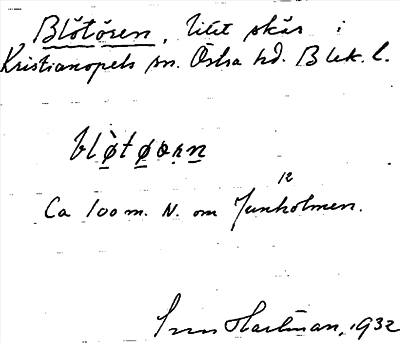 Blötören, litet skär i
Kristianopels sn. Östra hd. Blek. l.
blø̀tøʀn
12
Ca 100 m. N. om Junholmen.
Sven Hartman, 1932